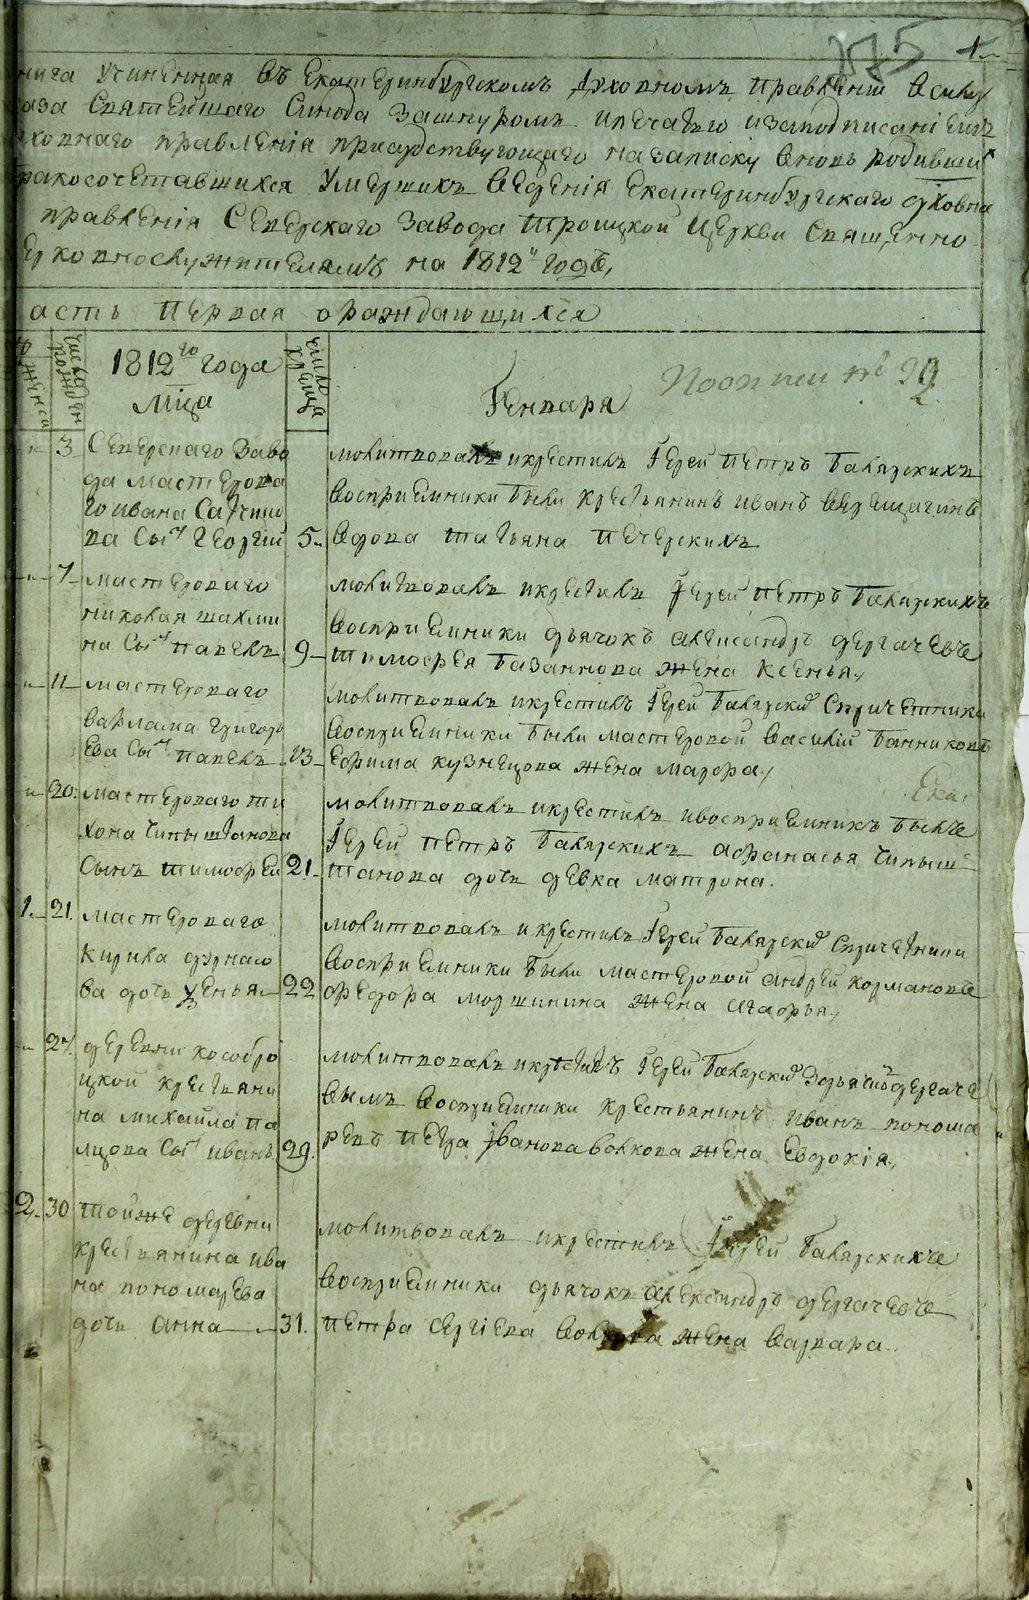 175 1
нига учиненная въ Екатеринбургскомъ духовномъ правленіи всилу
аза святейшаго Синода зашнуромъ ипечатью изаподписаніемъ
ховнаго правленія присудствующаго назаписку вновь родивших
ракосочетавшихся умершихъ веденія Екатеринбургскаго духовна
правленія Северскаго завода Троицкой церкви священно
ерковнослужителямъ на 1812й годъ,
асть первая ораждающихся
число рожден
1812го года
мца
число креще
Генваря
3
Северскаго заво
да мастерова
го ивана
ва сынъ георгий
5
молитвовалъ икрестилъ Іерей петръ Бавярскихъ
восприемники были крестьянинъ иванъ верещагинъ
вдова татьяна печерскихъ
7
мастероваго
николая шахми
на сынъ павелъ
9
молитвовалъ икрестилъ Іерей петръ Бавярскихъ
восприемники дьячокъ александръ дергачевъ
тимофея базаннова жена ксенья,
11
мастероваго
варлама григорь
ева сынъ павелъ
13
молитвовалъ икрестилъ Іерей Бавярский спричетники
восприемники были мастеровой василий банниковъ
ефима кузнецова жена марфа,
20
мастероваго ти
хона чипыштанова
сынъ тимофей
21
молитвовалъ икрестилъ ивосприемникъ былъ
Іерей петръ Бавярскихъ афанасья чипыш
танова дочь девка матрона.
1 21
мастероваго
кирила фурнасо
ва дочь ксенья
22
молитвовалъ икрестилъ Іерей Бавярский спричетники
восприемники были мастеровой андрей кормановъ
федора моршинина жена агафья,
27
деревни кособро
цкой крестьяни
на михайла па
лцова сынъ иванъ
29.
молитвовалъ икрестилъ Іерей Бавярский здьячкомъ дергаче
вымъ восприемники крестьянинъ иванъ понома
ревъ петра іванова волкова жена евдокія,
2 30
тойже деревни
крестьянина ива
на пономарева
дочь анна
31.
молитвовалъ икрестилъ Іерей Бавярскихъ
восприемники дьячокъ александръ дергачевъ
петра сергіева волкова жена варвара.
METRIKI.GASO-URAL.RU